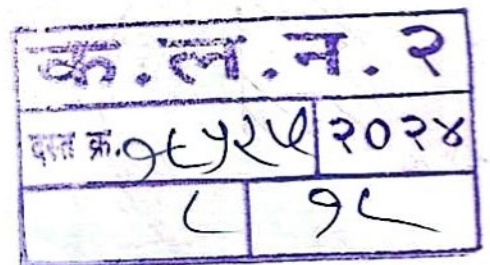 क.ल.न. २
दस्त क्र. १८५२५ २०२४
८ १८